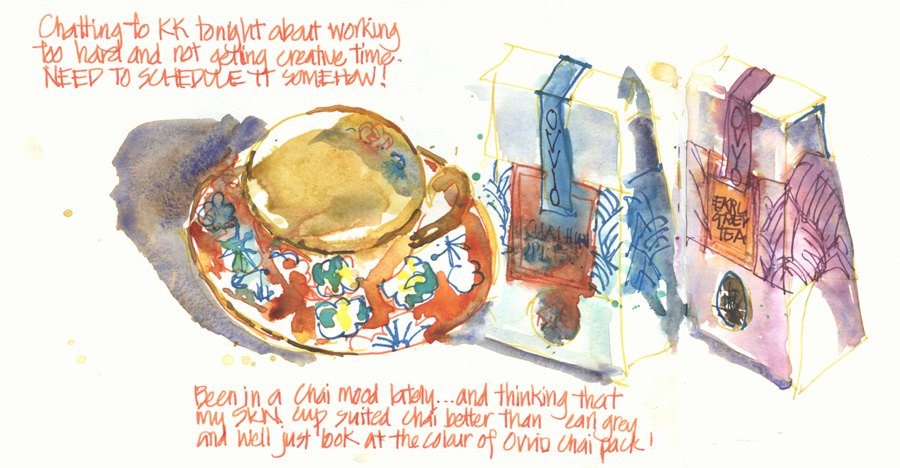 Chatting to KK tonight about working
too hard and not getting creative time.
NEED TO SCHEDULE IT SOMEHOW!
OVVIO
OVVIO
CHAI
EARL
GREY
TEA
Been in a Chai mood lately...and thinking that
my SKN cup suited chai better than earl grey
and well just look at the colour of Ovvio chai pack!